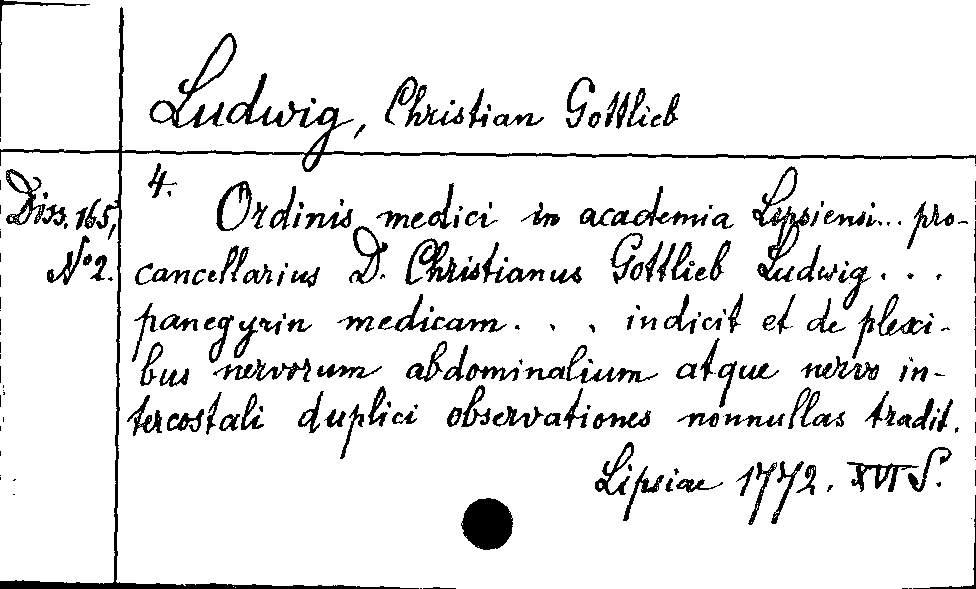 Ludwig, Christian Gottlieb
Diss. 165,
No 2.
4.
Ordinis medici in academia Lipsiensi... pro-
cancellarius D. Christianus Gottlieb Ludwig...
panegyrin medicam... indicit et de plexi-
bus nervorum abdominalium atque nervo in-
tercostali duplici observationes nonnullas tradit.
Lipsiae 1772. XVI S.